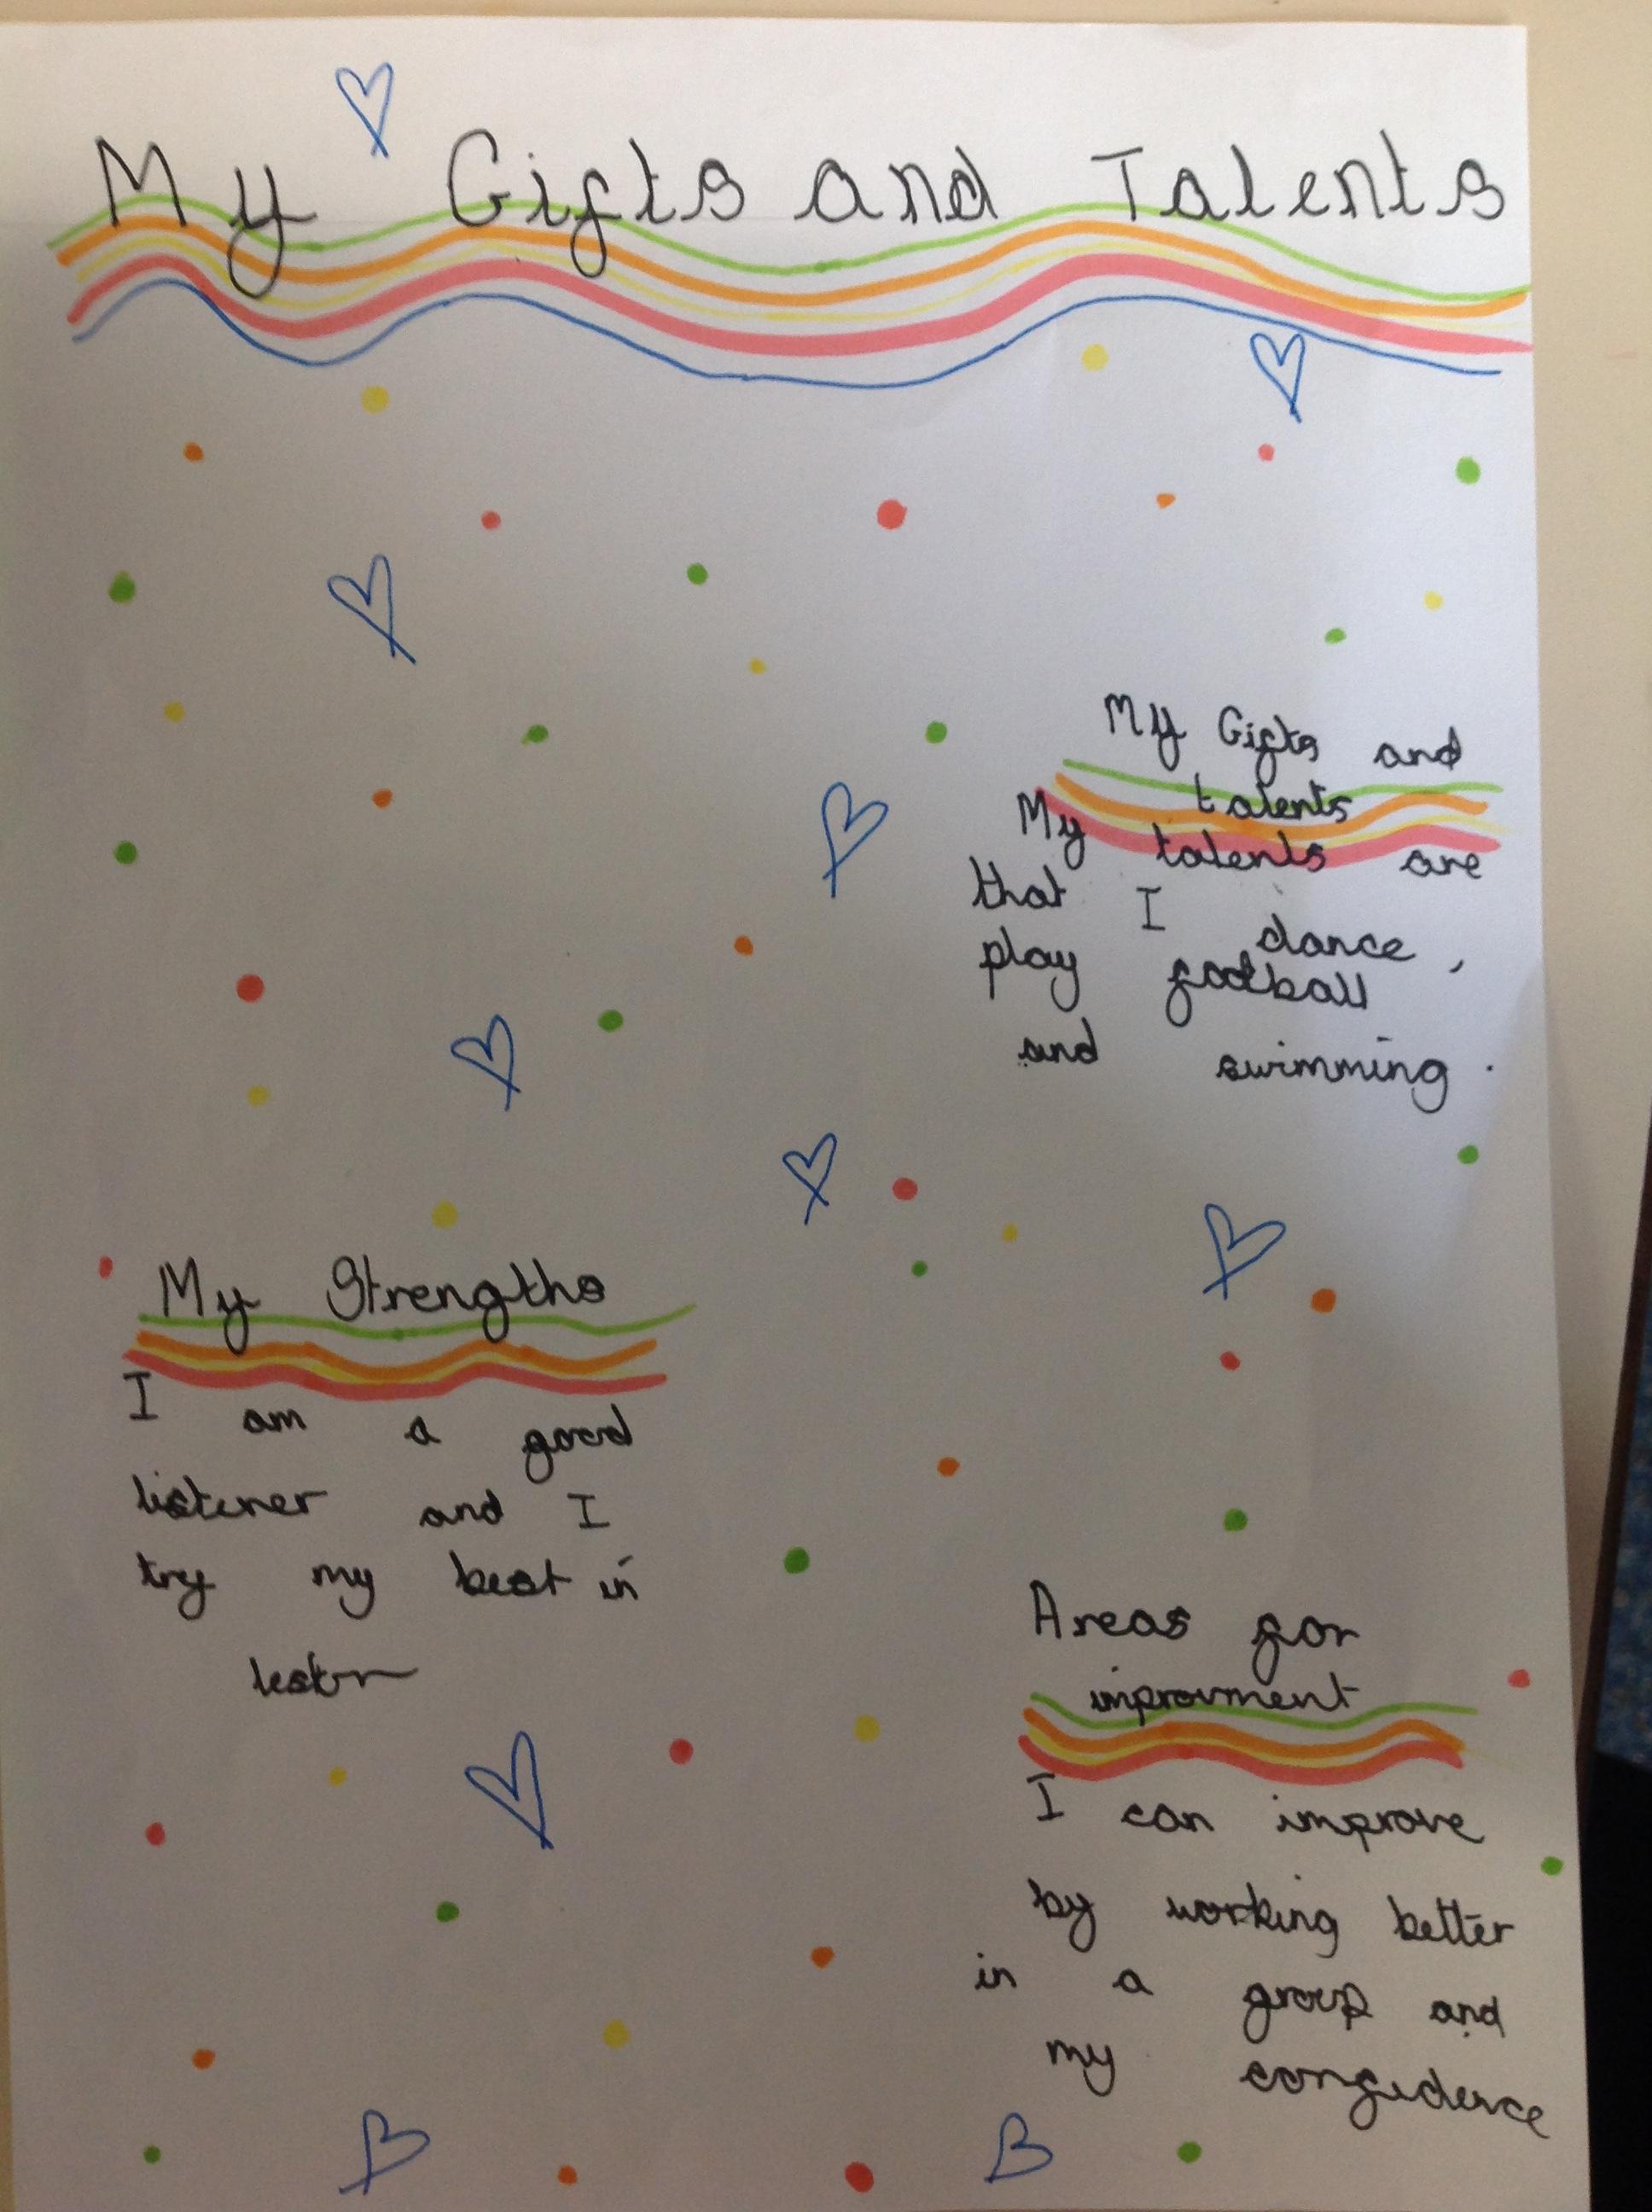 My Gifts and Talents
My Gifts and
talents
My talents are
that I dance,
play football
and swimming.
My Strengths
I am a good
listener and I
try my best in
Areas for
improvment
I can improve
by working better
in a group and
my confidence